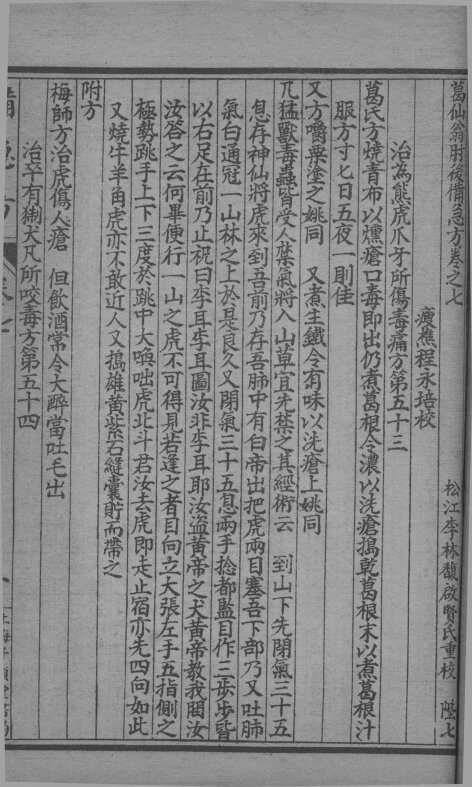 葛仙翁肘後備急方卷之七
松江李林馥啟賢氏重校 陞七
瘦樵程永培校
治為熊虎爪牙所傷毒痛方第五十三
葛氏方燒青布以燻瘡口毒即出仍煮葛根令濃以洗瘡搗乾葛根末以煮葛根汁
服方寸匕日五夜一則佳
又方嚼粟塗之姚同 又煮生鐵令有味以洗瘡上姚同
凡猛獸毒蟲皆受人禁氣將入山草宜先禁之其經術云 到山下先閉氣三十五
息存神仙將虎來到吾前乃存吾肺中有白帝出把虎兩目塞吾下部乃又吐肺
氣白通冠一山林之上於是良久又閉氣三十五息兩手捻都監目作三步步皆
以右足在前乃止祝曰李耳李耳圖汝非李耳耶汝盜黃帝之犬黃帝教我問汝
汝答之云何畢便行一山之虎不可得見若逢之者目向立大張左手五指側之
極勢跳手上下三度於跳中大喚咄虎北斗君汝去虎即走止宿亦先四向如此
又燒牛羊角虎亦不敢近人又搗雄黃紫石縫囊貯而帶之
附方
梅師方治虎傷人瘡 但飲酒常令大醉當吐毛出
治卒有猘犬凡所咬毒方第五十四